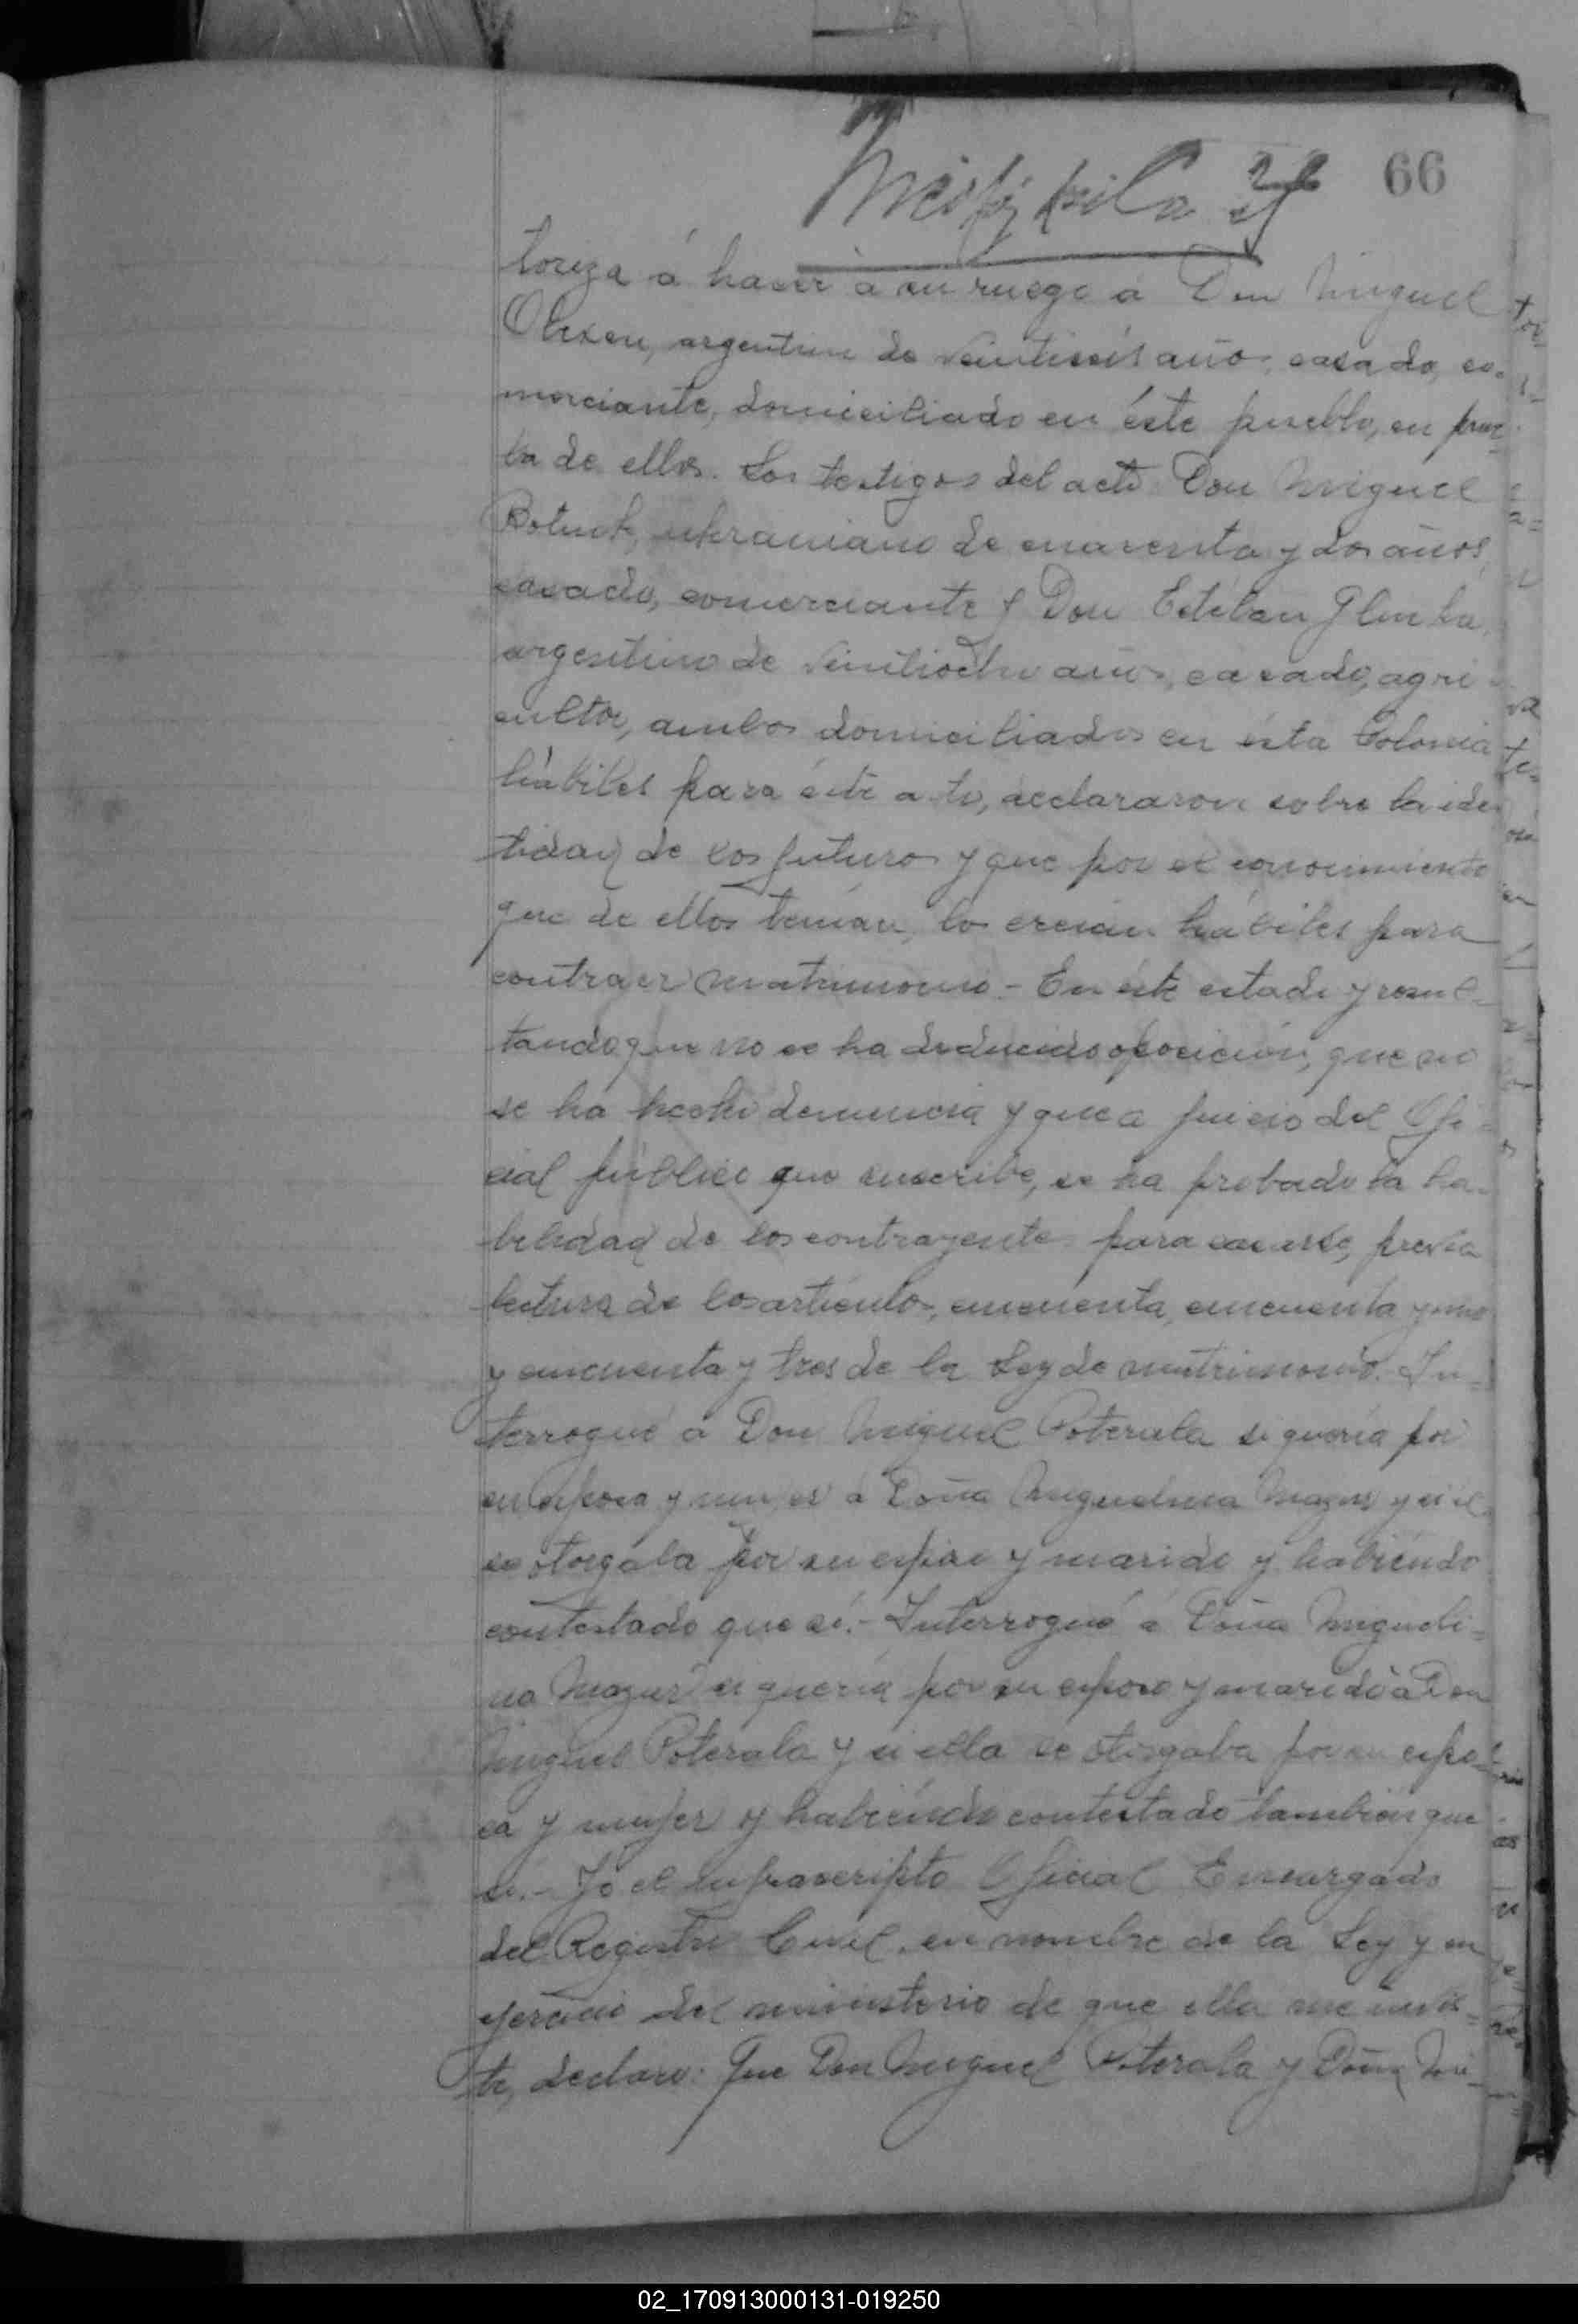 66
toriza á hacer á su ruego á Don Miguel
Olexen, argentino de veintiseis años, casado, co-
merciante, domiciliado en éste pueblo, en prue-
ba de ellos. Los testigos del acto Don Miguel
Botiuk, ukraniano de cuarenta y dos años,
casado, comerciante y Don Estéban Glinka
argentino de veintiocho años, casado, agri-
cultor, ambos domiciliados en ésta Colonia
hábiles para éste acto, declararon sobre la iden
tidad de los futuros y que por el conocimiento
que de ellos tenían, los creían hábiles para
contraer matrimonio.- En éste estado y resul-
tando que no se ha deducido oposición, que no
se ha hecho denuncia y que a juicio del Ofi-
cial público que suscribe, se ha probado la ha-
bilidad de los contrayentes para casarse, previa
lectura de los artículos, cincuenta, cincuenta y uno
y cincuenta y tres de la Ley de matrimonio. In-
terrogué a Don Miguel Poterala si quería por
su esposa y mujer á Doña Miguelina Mazur y si él
se otorgaba por su esposo y marido y habiendo
contestado que sí.- Interrogué á Doña Migueli-
na Mazur si quería por su esposo y marido á Don
Miguel Poterala y si ella se otorgaba por su espo-
sa y mujer y habiendo contestado también que
sí.- Yo el infrascripto Oficial Encargado
del Registro Civil, en nombre de la Ley y en
ejercicio del ministerio de que ella me invis-
te, declaro: Que Don Miguel Poterala y Doña Mi-
02_170913000131-019250